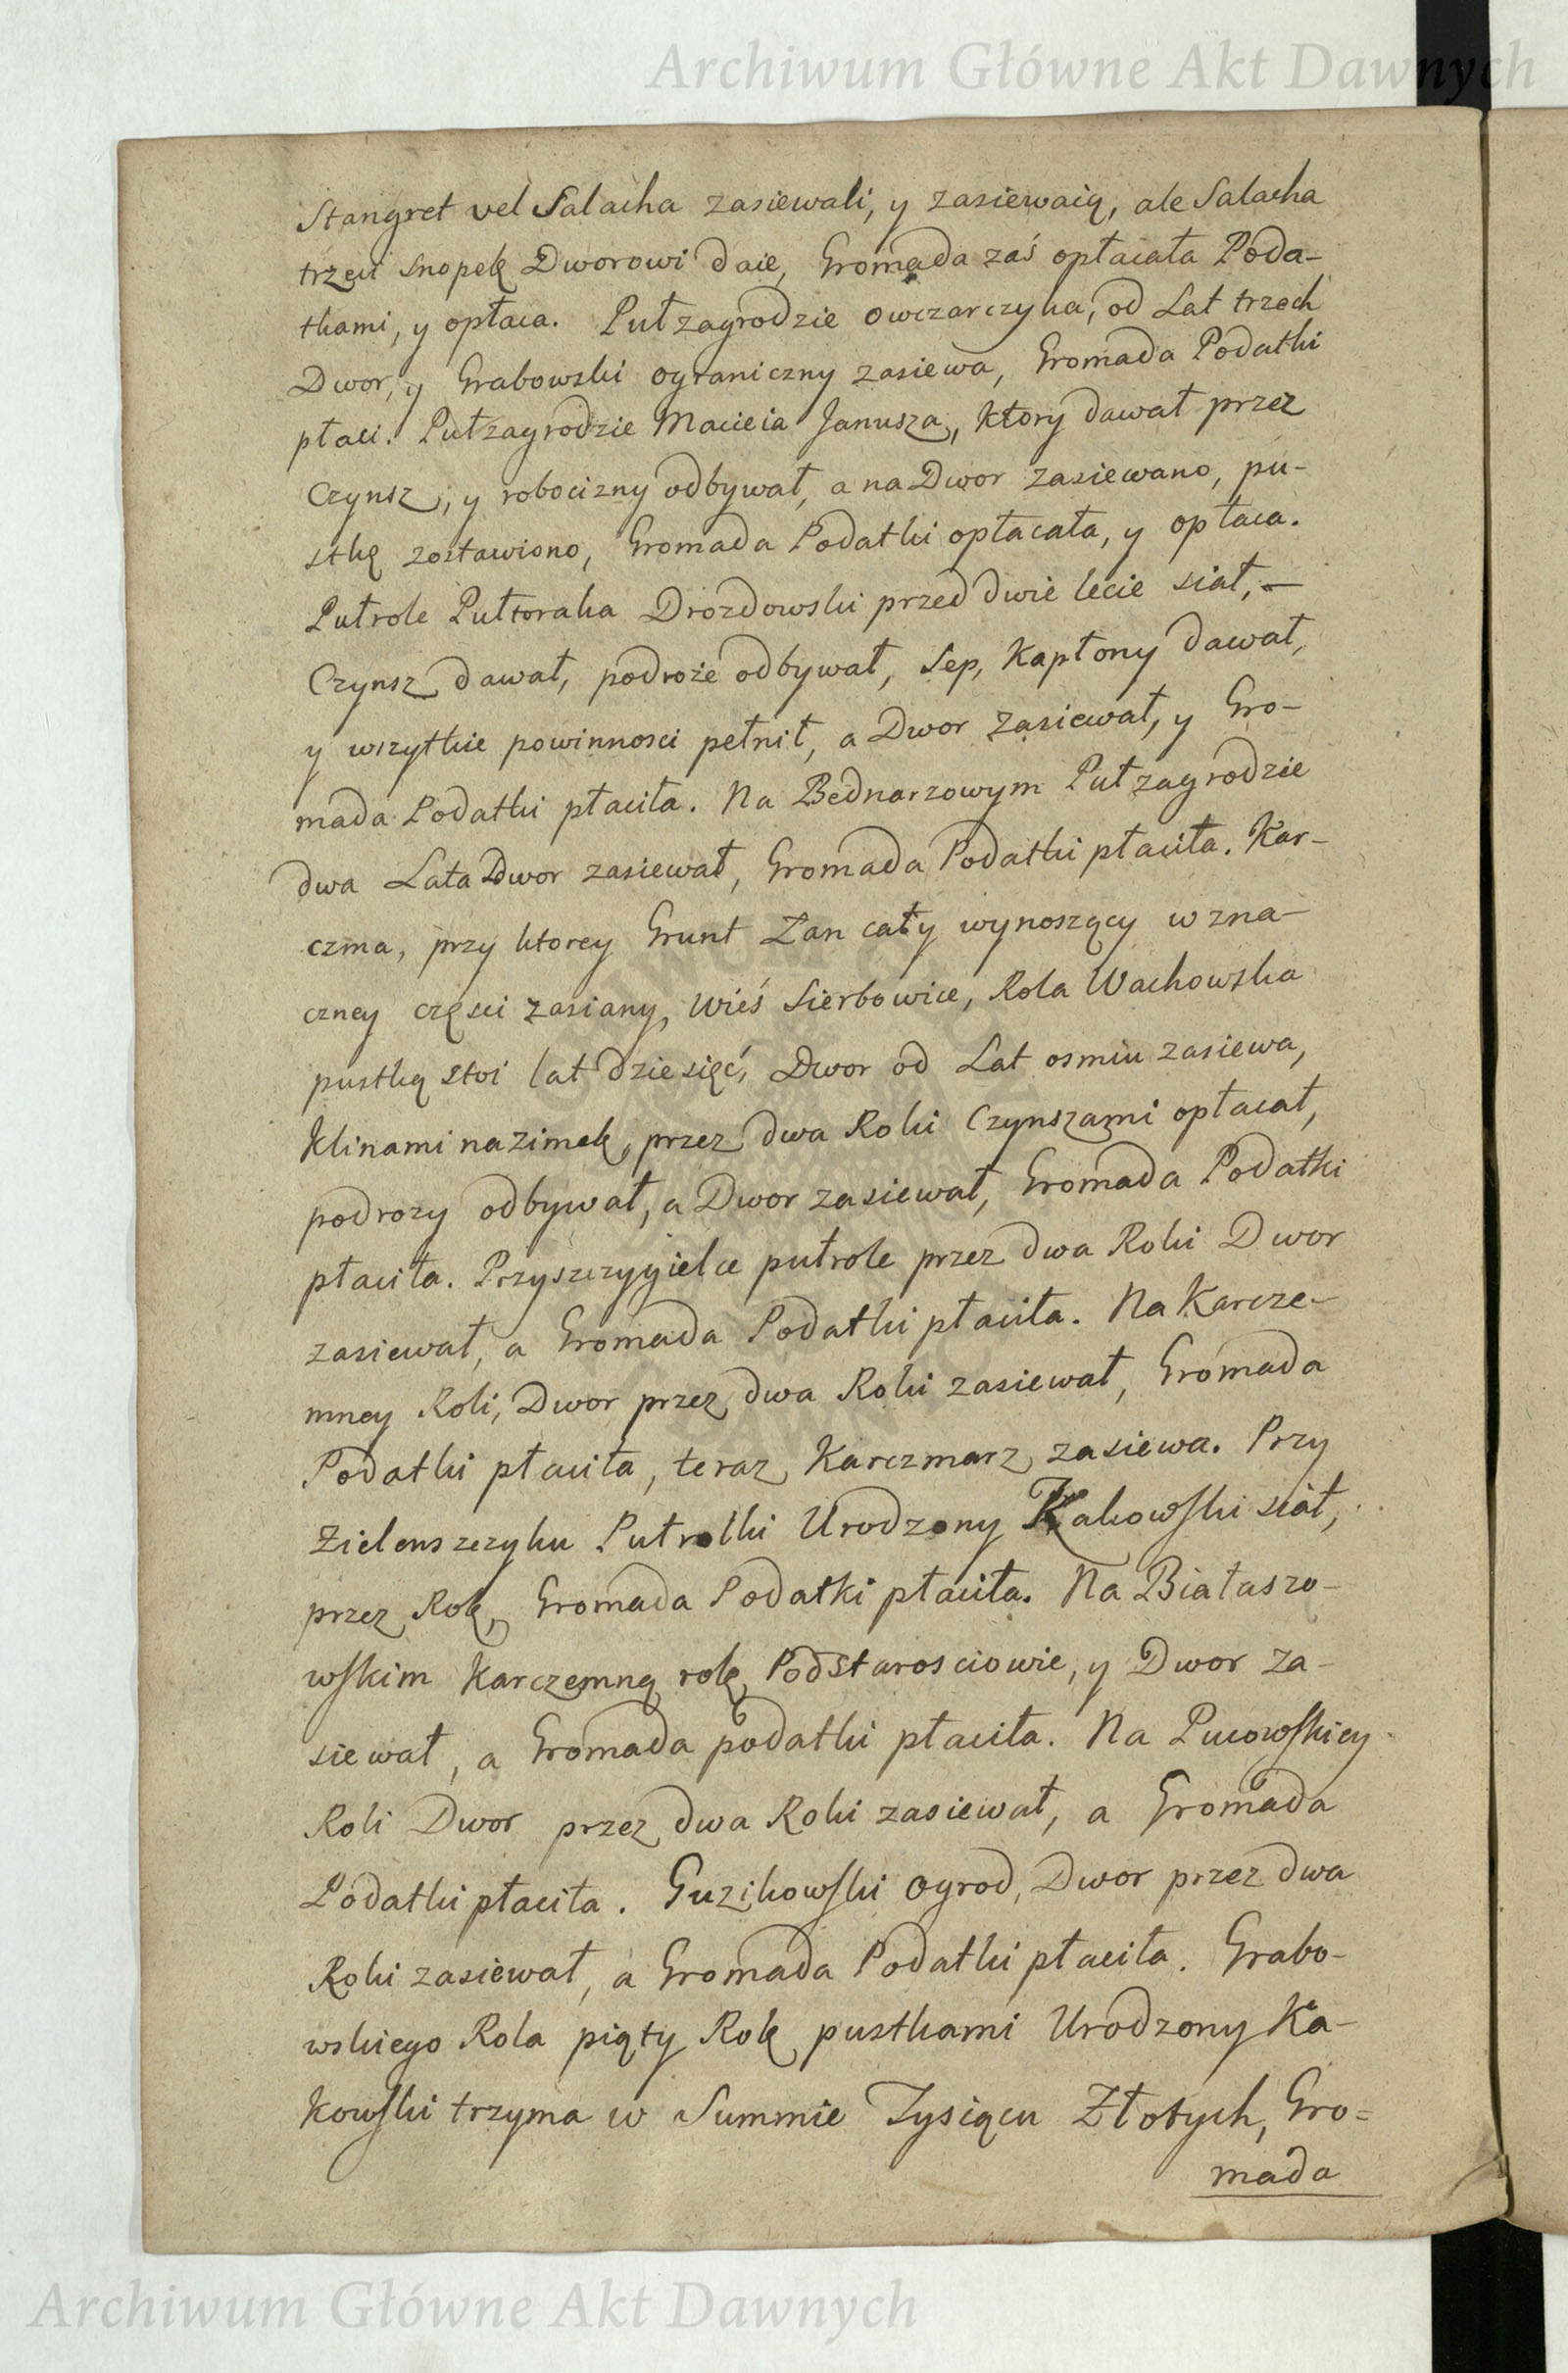 Archiwum Główne Akt Dawnych
Stangret vel Salacha zasiewali, y zasiewaią, ale Salacha
trzeci snopek Dworowi daie, Gromada zaś opłacała Poda-
tkami, y opłaca. Puł zagrodzie owczarczyka, od Lat trzech
Dwor, y Grabowski ograniczny zasiewa, Gromada Podatki
płaci. Pułzagrodzie Macieia Janusza, ktory dawał przez
Czynsz, y robocizny odbywał, a na Dwor zasiewano, pu-
stkę zostawiono, Gromada Podatki opłacała, y opłaca.
Pułrole Pułtoraka Drozdowski przed dwie lecie siał, —
Czynsz dawał, podroże odbywał, Sep, Kapłony dawał,
y wszytkie powinnosci pełnił, a Dwor zasiewał, y Gro-
mada Podatki płaciła. Na Bednarzowym Pułzagrodzie
dwa Lata Dwor zasiewał, Gromada Podatki płaciła. Kar-
czma, przy ktorey Grunt Łan cały wynoszący w zna-
czney częsci zasiany, Wieś Sierbowice, Rola Wachowska
pustką stoi lat dziesięć, Dwor od Lat osmiu zasiewa,
Klinami nazimek, przez dwa Roki Czynszami opłacał,
podrozy odbywał, a Dwor zasiewał, Gromada Podatki
płaciła. Przyszczygielce pułrole przez dwa Roki Dwor
zasiewał, a Gromada Podatki płaciła. Na Karcze-
mney Roli, Dwor przez dwa Roki zasiewał, Gromada
Podatki płaciła, teraz Karczmarz zasiewa. Przy
Zielenszczyku Pułrolki Urodzony Kakowski siał,
przez Rok, Gromada Podatki płaciła. Na Białaszo-
wskim Karczemną rolę Podstarosciowie, y Dwor za-
siewał, a Gromada podatki płaciła. Na Pucowskiey
Roli Dwor przez dwa Roki zasiewał, a Gromada
Podatki płaciła. Guzikowski ogrod, Dwor przez dwa
Roki zasiewał, a Gromada Podatki płaciła. Grabo-
wskiego Rola piąty Rok pustkami Urodzony Ka-
kowski trzyma w Summie Tysiącu Złotych, Gro=
mada
Archiwum Główne Akt Dawnych